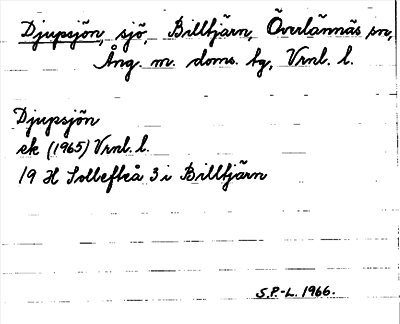 Djupsjön, sjö, Billtjärn, Överlännäs sn,
Ång. m. doms. bg, Vrnl. l.
Djupsjön
ek (1965) Vrnl. l.
19 H Sollefteå 3 i Billtjärn
S.P.-L. 1966.